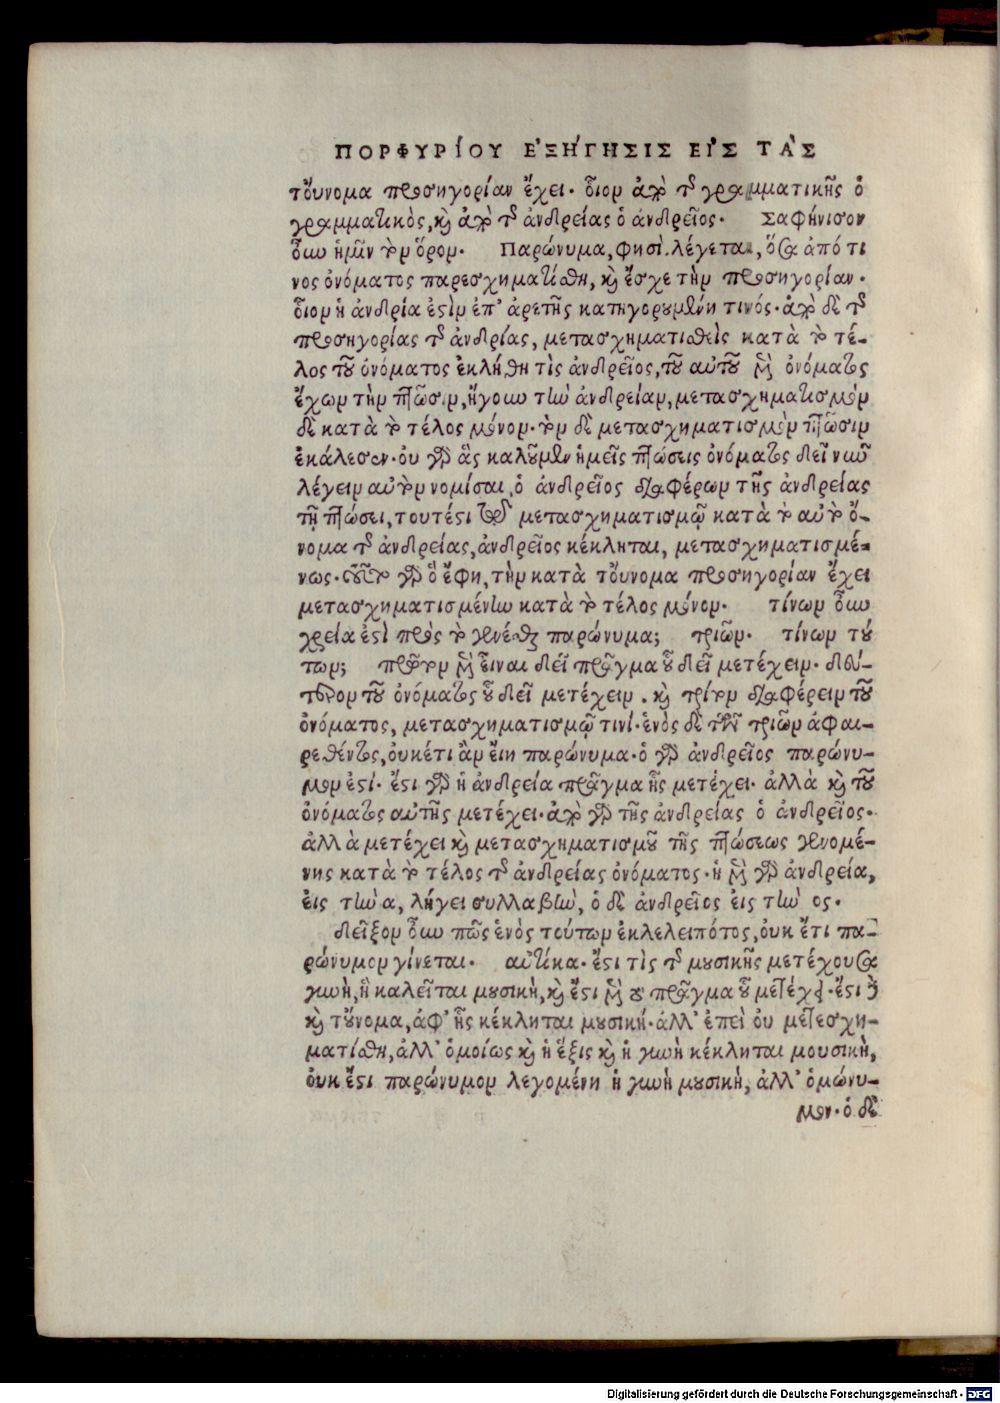 ΠΟΡΦΥΡΙΟΥ ἘΞΉΓΗΣΙΣ ΕἸΣ ΤᾺΣ
τὄυνομα προσηγορίαν ἔχει. ὅιον ἀπὸ τῆς γραμματικῆς ὁ
γραμματικὸς, καὶ ἀπὸ τῆς ἀνδρείας ὁ ἀνδρεῖος. Σαφήνισον
ὅυν ἡμῖν τὸν ὅρον. Παρώνυμα, φησὶ λέγεται, ὅσα ἀπό τι
νος ὀνόματος παρεσχηματίσθη, καὶ ἔσχε τὴν προσηγορίαν.
ὅιον ἡ ἀνδρία ἐστὶν ἐπ' ἀρετῆς κατηγορουμένη τινός. ἀπὸ δὲ τῆς
προσηγορίας τῆς ἀνδρίας, μετασχηματισθεὶς κατὰ τὸ τέ-
λος τοῦ ὀνόματος ἐκλήθη τὶς ἀνδρεῖος, τοῦ αὐτοῦ μὲν ὀνόματος
ἔχων τὴν πτῶσιν, ἤγουν τὴν ἀνδρείαν, μετασχηματισμὸν
δὲ κατὰ τὸ τέλος μόνον. τὸν δὲ μετασχηματισμὸν πτῶσιν
ἐκάλεσεν. ου γὰρ ἃς καλοῦμεν ἡμεῖς πτώσεις ὀνόματος δεῖ νῦν
λέγειν αὐτὸν νομίσαι, ὁ ἀνδρεῖος διαφέρων τῆς ἀνδρείας
τῇ πτώσει, τουτέστι τῷ μετασχηματισμῷ κατὰ τὸ αὐτὸ ὄ-
νομα τῆς ἀνδρείας, ἀνδρεῖος κέκληται, μετασχηματισμέ-
νως. τοῦτο γὰρ ὃ ἔφη, τὴν κατὰ τὄυνομα προσηγορίαν ἔχει
μετασχηματισμένην κατὰ τὸ τέλος μόνον. τίνων ὅυν
χρεία ἐστὶ πρὸς τὸ γενέσθαι παρώνυμα; τριῶν. τίνων τού
των; πρῶτον μὲν ἐῖναι δεῖ πρᾶγμα οὗ δεῖ μετέχειν. δεύ-
τερον τοῦ ὀνόματος οὗ δεῖ μετέχειν. καὶ τρίτον διαφέρειν τοῦ
ὀνόματος, μετασχηματισμῷ τινί. ἑνὸς δὲ τῶν τριῶν ἀφαι-
ρεθέντος, ὀυκέτι ἂν ἔιη παρώνυμα. ὁ γὰρ ἀνδρεῖος παρώνυ-
μον ἐστί. ἔστι γὰρ ἡ ἀνδρεία πρᾶγμα ἧς μετέχει. ἀλλὰ καὶ τοῦ
ὀνόματος αὐτῆς μετέχει. ἀπὸ γὰρ τῆς ἀνδρείας ὁ ἀνδρεῖος.
ἀλλὰ μετέχει καὶ μετασχηματισμοῦ τῆς πτώσεως γενομέ-
νης κατὰ τὸ τέλος τῆς ἀνδρείας ὀνόματος. ἡ μὲν γὰρ ἀνδρεία,
ἐις τὴν α, λήγει συλλαβὴν, ὁ δὲ ἀνδρεῖος ἐις τὴν ος.
δεῖξον ὅυν πῶς ἑνὸς τούτων ἐκλελειπότος, ὀυκ ἔτι πα-
ρώνυμον γίνεται. αὐτίκα. ἔστι τὶς τῆς μουσικῆς μετέχουσα
γυνὴ, ἣ καλεῖται μουσικὴ, καὶ ἔστι μὲν τὸ πρᾶγμα οὗ μετέχει. ἔστι δὲ
καὶ τὔνομα, ἀφ' ἧς κέκληται μουσική. ἀλλ' ἐπεὶ ου μετεσχη-
ματίσθη, ἀλλ' ὁμοίως καὶ ἡ ἕξις καὶ ἡ γυνὴ κέκληται μουσικὴ,
ὀυκ ἔστι παρώνυμον λεγομένη ἡ γυνὴ μουσικὴ, ἀλλ' ὁμώνυ-
μον. ὁ δὲ
Digitalisierung gefördert durch die Deutsche Forschungsgemeinschaft - DFG